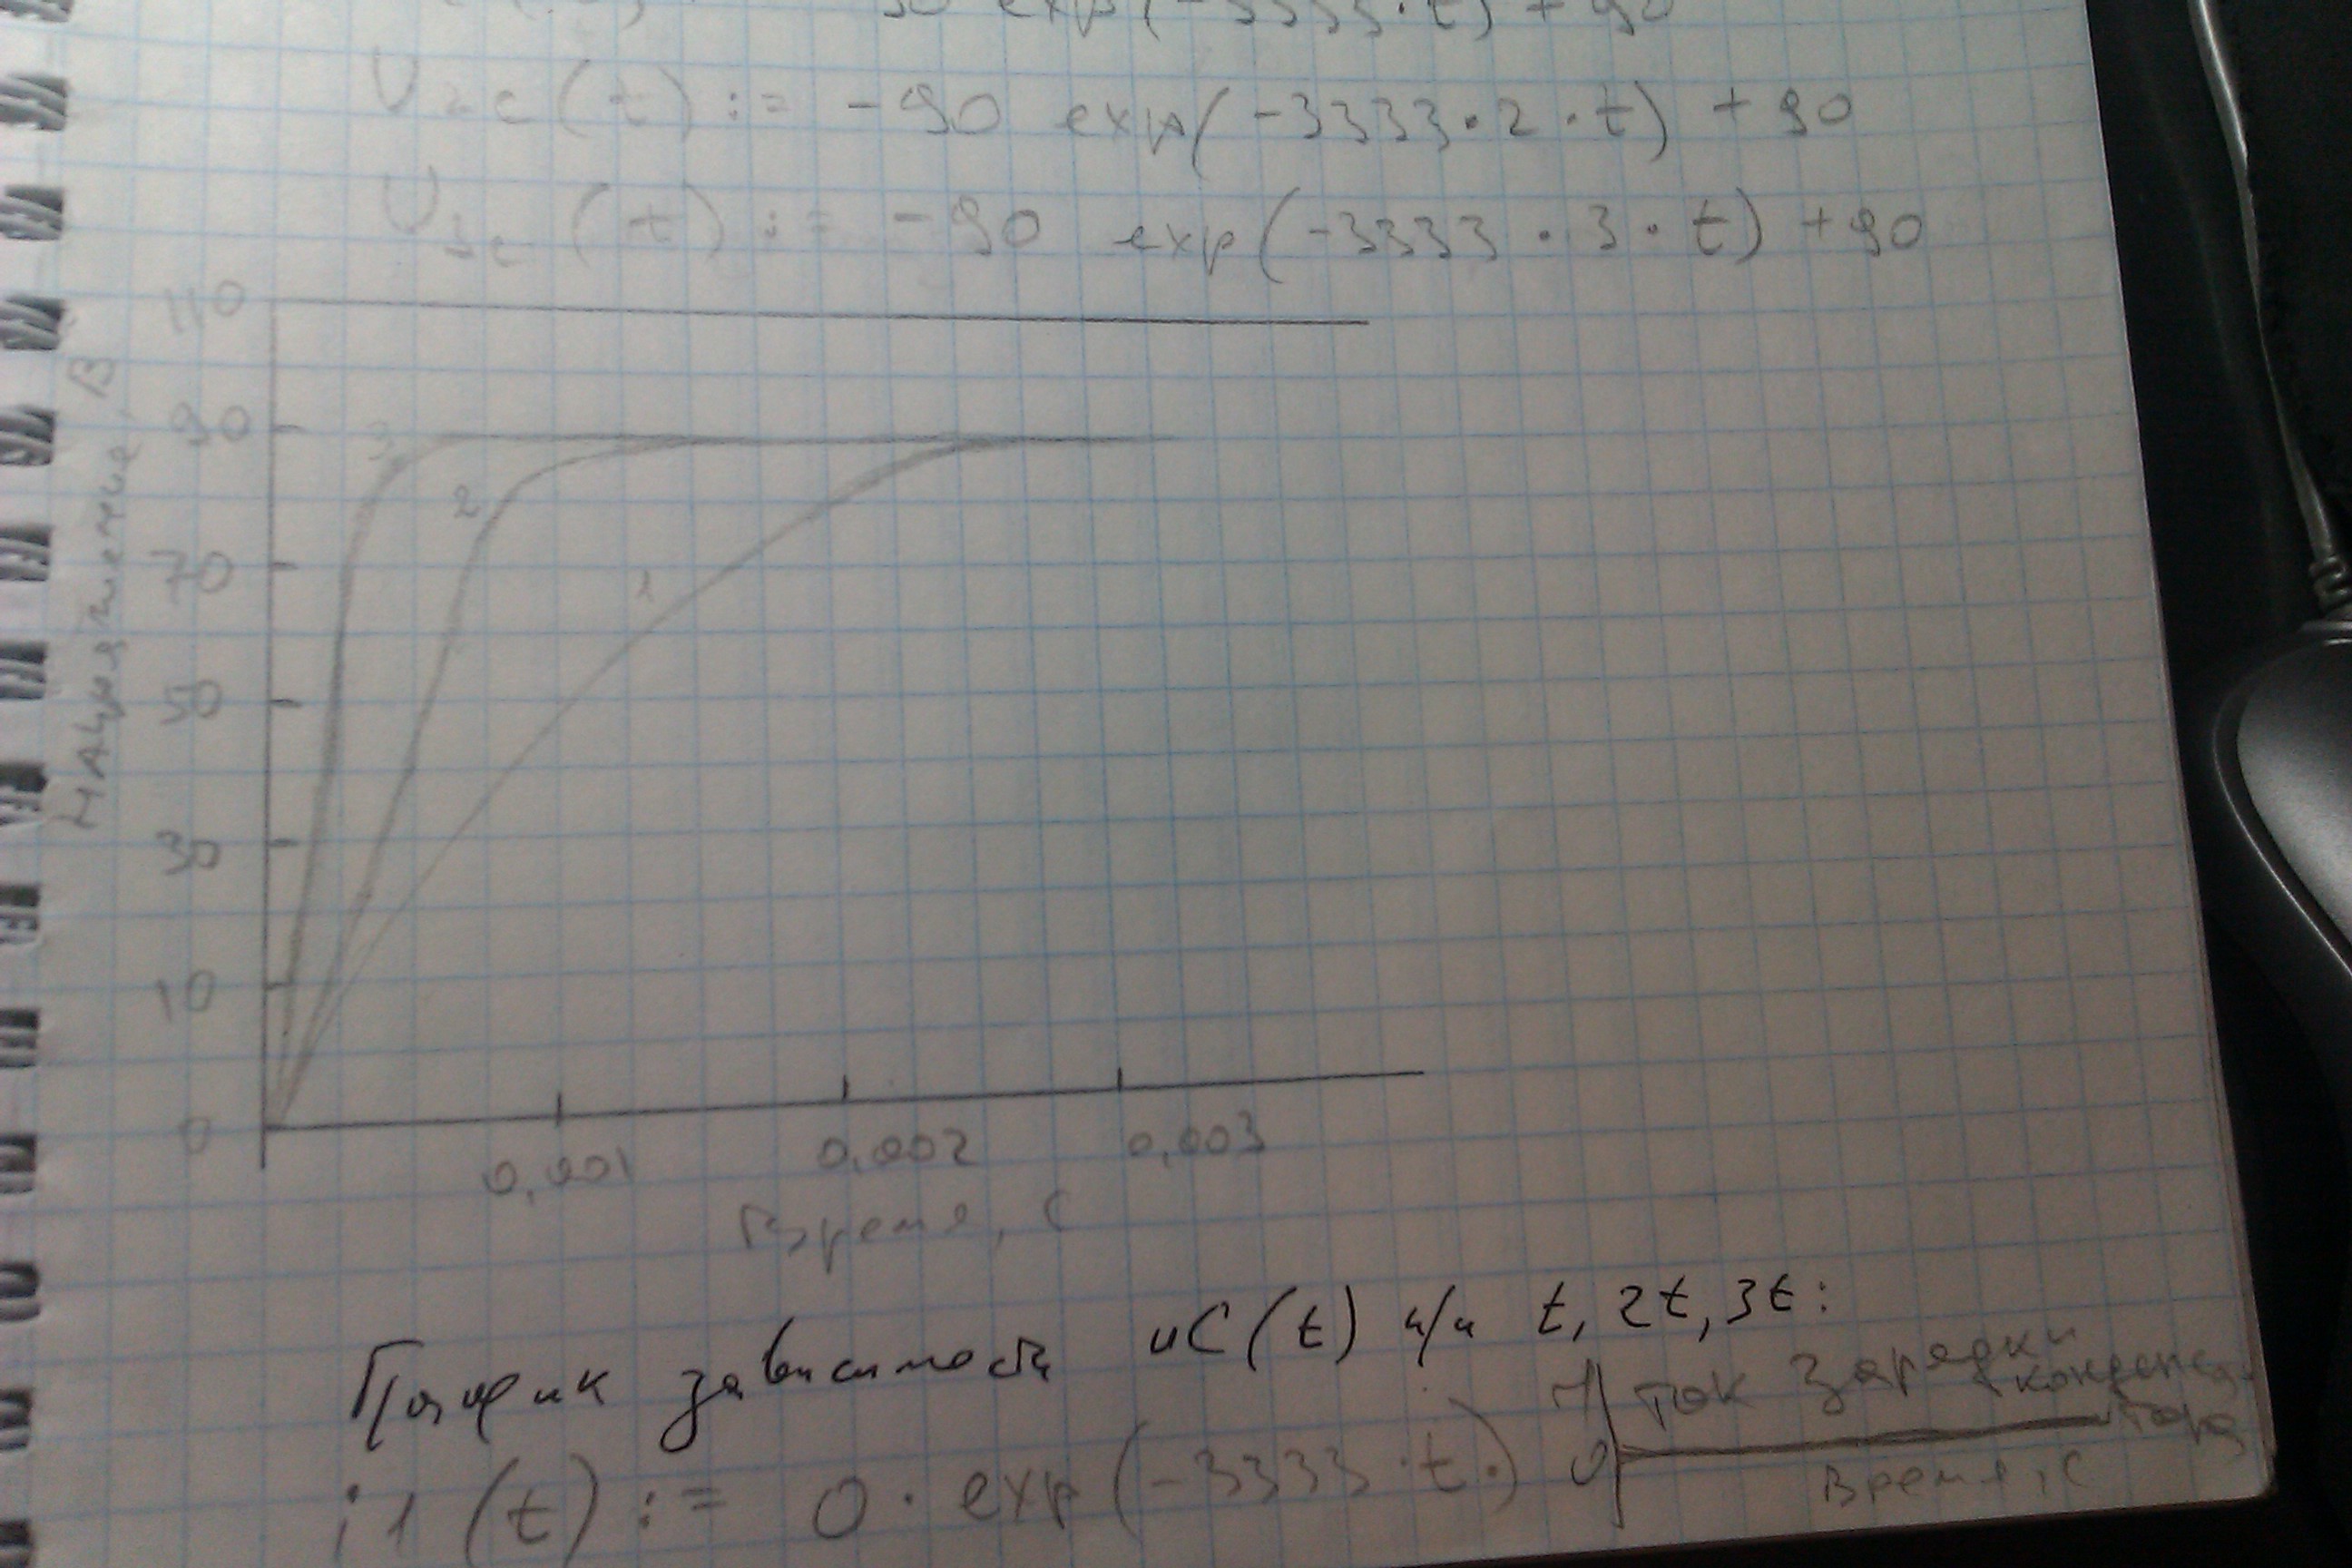 90 exp(-3333·t) + 90
U2c(t) := -90 exp(-3333·2·t) + 90
U3c(t) := -90 exp(-3333·3·t) + 90
110
90
70
50
30
10
0
Напряжение, В
3
2
1
0,001
0,002
0,003
Время, С
График зависимости uC(t) н/и t, 2t, 3t:
i1(t) := 0·exp(-3333·t·)
1
0
ток зарядки
конденса-
тора
Время, С